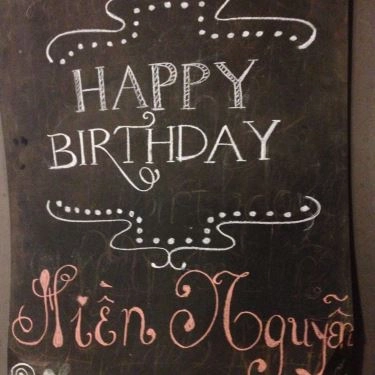 HAPPY
BIRTHDAY
Miền Nguyễn